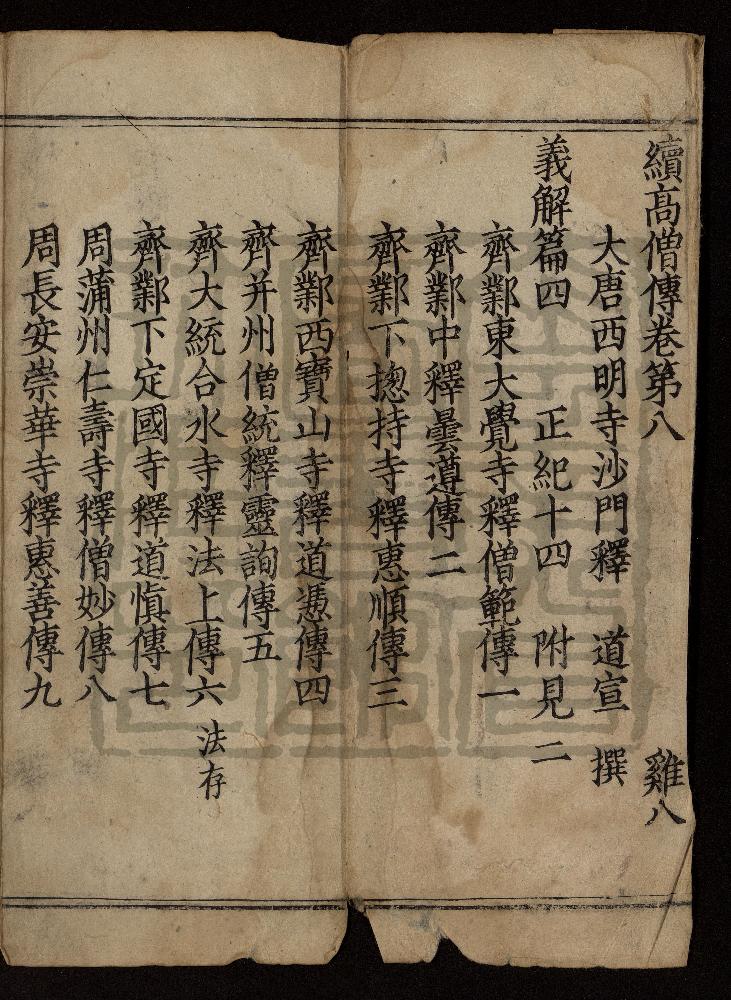 續髙僧傳卷第八 雞八
大唐西明寺沙門釋 道宣 撰
義解篇四 正紀十四 附見二
齊鄴東大覺寺釋僧範傳一
齊鄴中釋曇遵傳二
齊鄴下揔持寺釋惠順傳三
齊鄴西寶山寺釋道憑傳四
齊并州僧統釋靈詢傳五
齊大統合水寺釋法上傳六 法存
齊鄴下定國寺釋道慎傳七
周蒲州仁壽寺釋僧妙傳八
周長安崇華寺釋惠善傳九